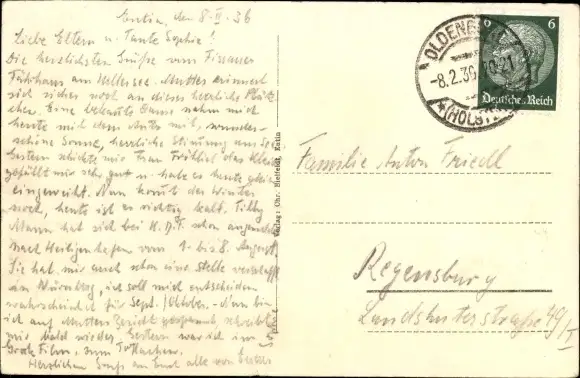 Eutin, den 8. II. 36
Liebe Eltern u. Tante Sophie!
Die herzlichsten Grüße vom Fissauer
Fährhaus am Kellersee. Mutter erinnert
sich sicher noch an dieses herrliche Plätz-
chen. Eine bekannte Dame nahm mich
heute mit dem Auto mit, wunder-
schöne Sonne, herrliche Stimmung am See
Gestern schickte mir Frau Fröhlich das Kleid
gefällt mir sehr gut u. habe es heute gleich
eingeweiht. Nun kommt der Winter
noch, heute ist es richtig kalt. Tilly
Mann hat sich bei K.D.F. schon angemeldet
nach Heiligenhafen vom 1. bis 8. August.
Sie hat mir auch schon eine Stelle verschafft
in Nürnberg, ich soll mich entscheiden
wahrscheinlich für Sept./Oktober. Nun bin
ich auf Mutters Bericht gespannt, schreibt
mir bald wieder. Gestern war ich im
Film, zum Totlachen.
Herzlichen Gruß an Euch alle von
Verlag: Chr. Hielfeldt, Eutin
OLDENBURG
-8.2.36.
*(HOLST)
6 6
Deutsches Reich
Familie Anton Friedl
Regensburg
Landshuterstraße 49/I